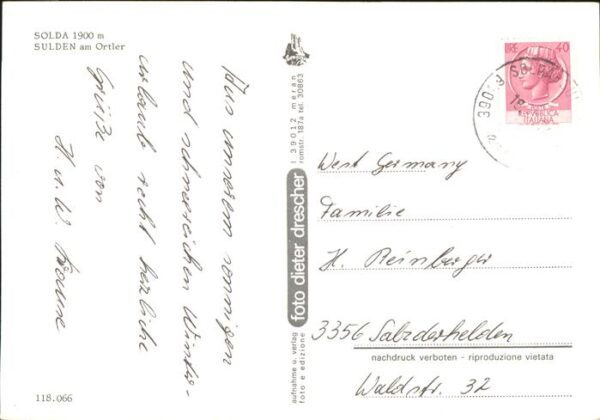 SOLDA 1900 m
SULDEN am Ortler
Aus unserem sonnigen
und schneereichen Winter-
urlaub recht herzliche
Grüße von
H. u. W.
foto dieter drescher
I 39012 meran
romstr. 187a tel. 30863
aufnahme u. verlag
foto e edizione
LIRE 40
REPVBBLICA
ITALIANA
West Germany
Familie
H. Reinberger
3356 Salzderhelden
nachdruck verboten - riproduzione vietata
Waldstr. 32
118.066